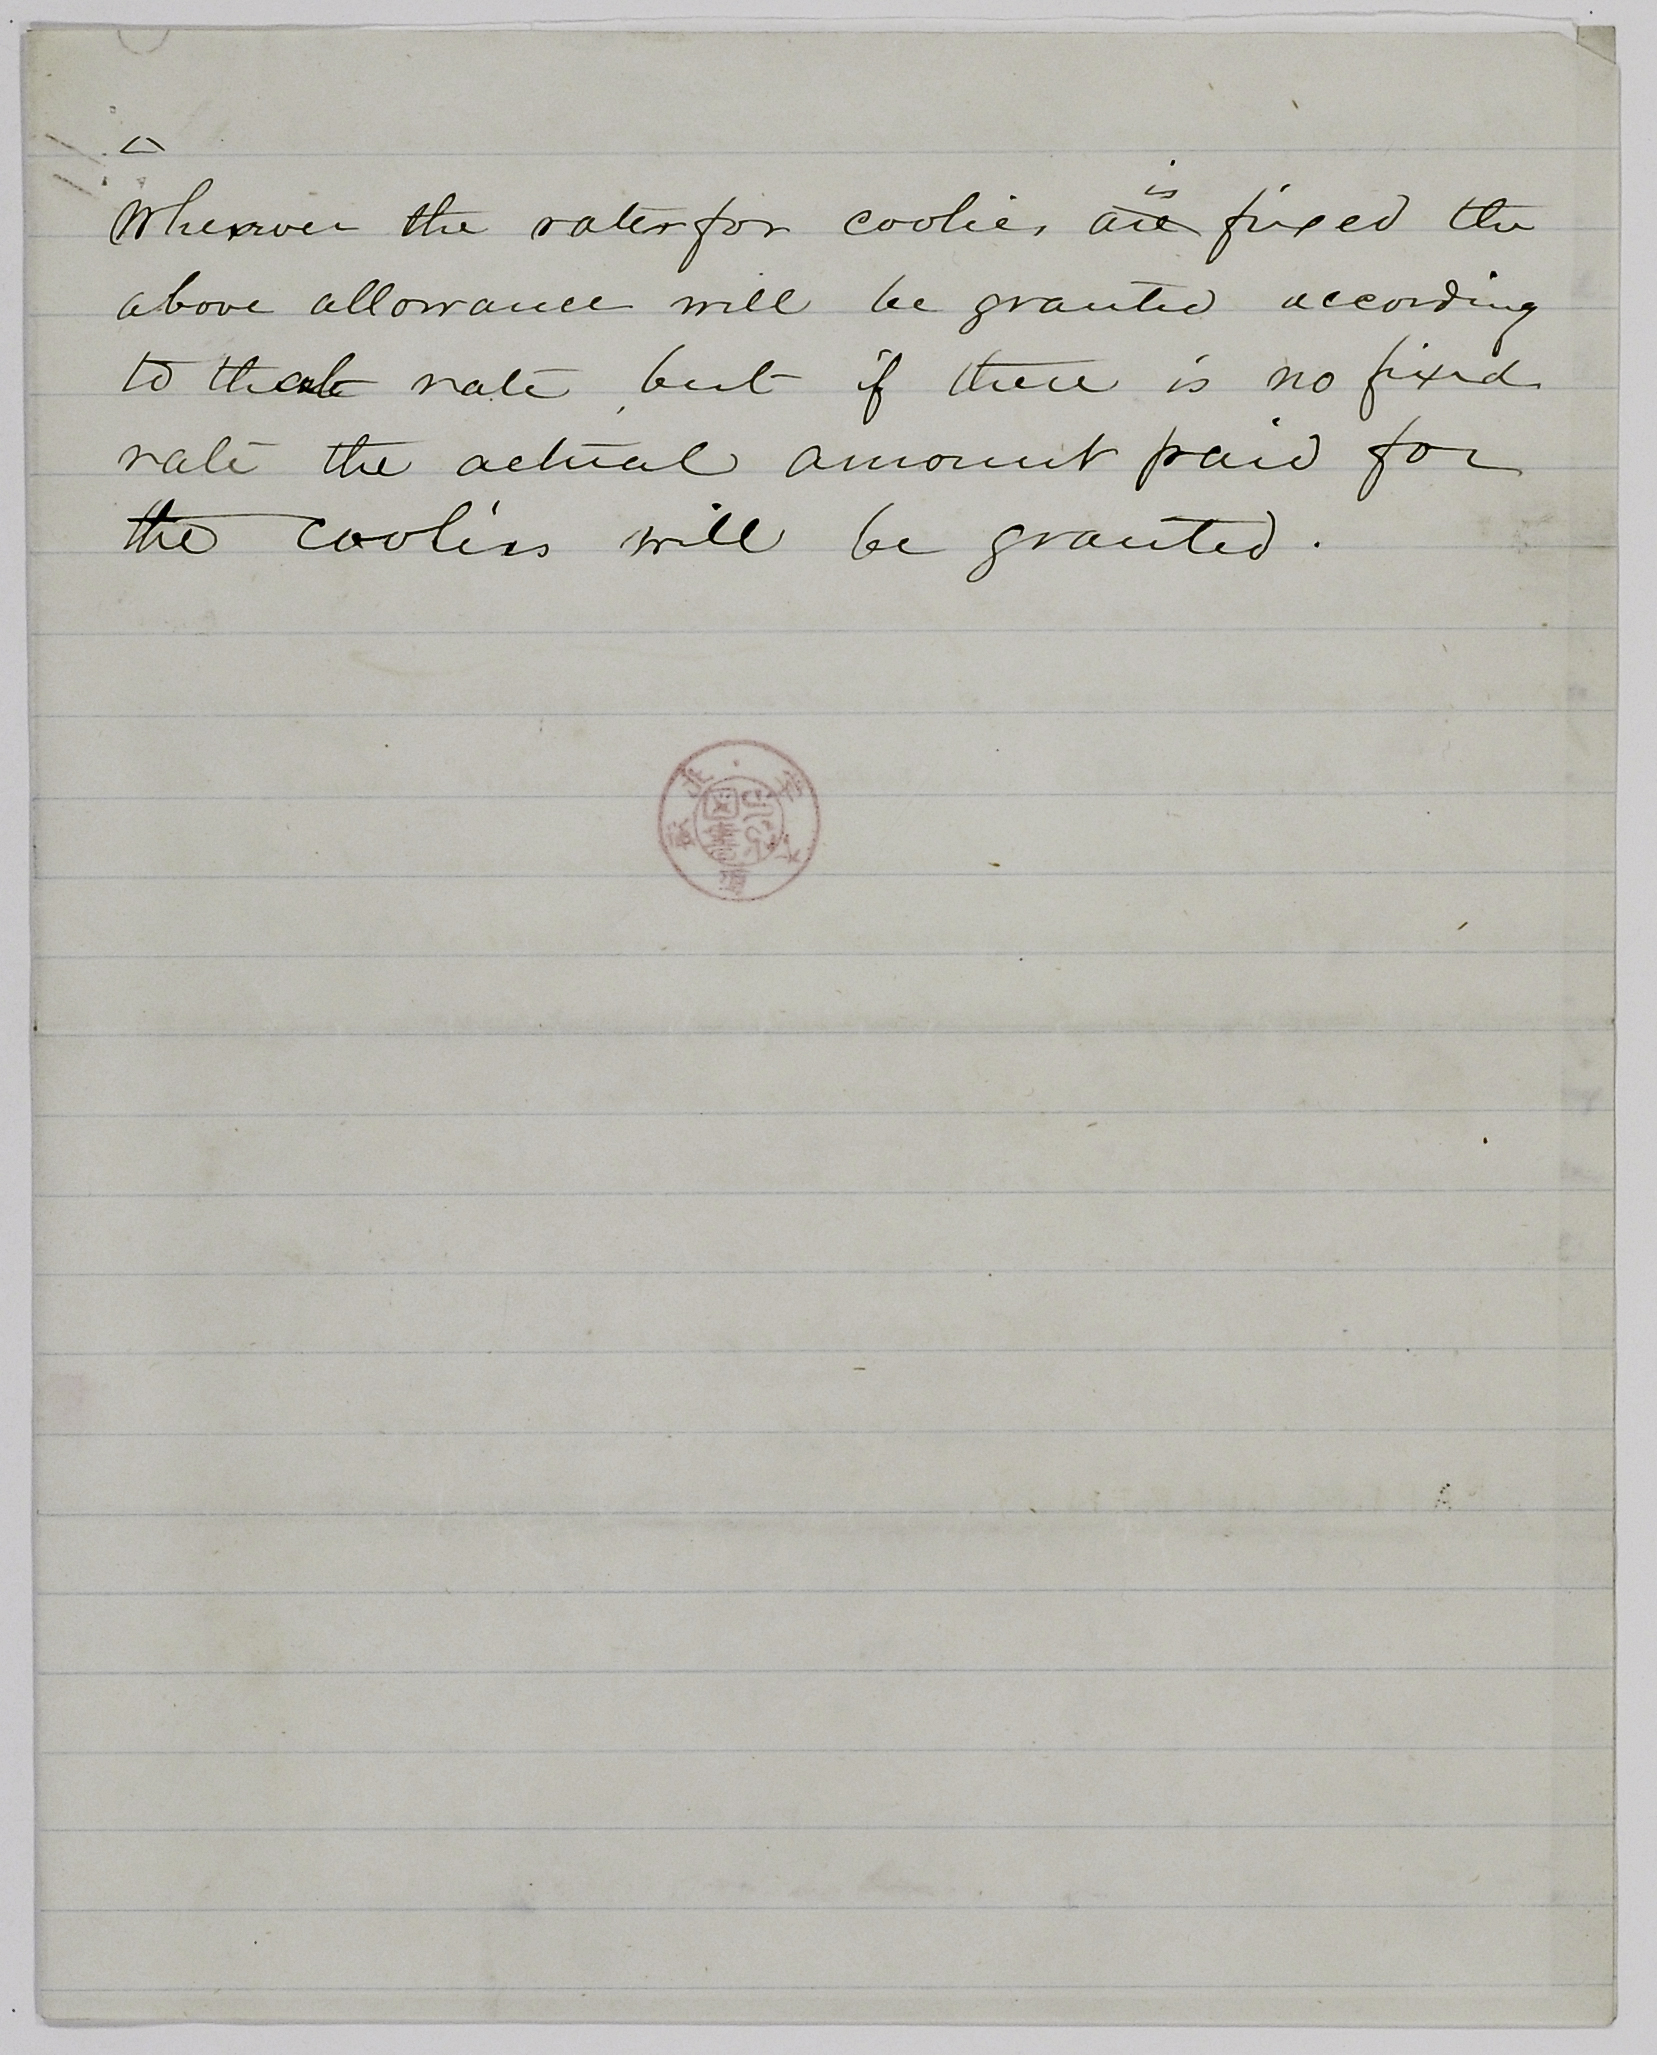 is
Wherever the rates for coolies are fixed the
above allowance will be granted according
to that rate, but if there is no fixed
rate the actual amount paid for
the coolies will be granted.